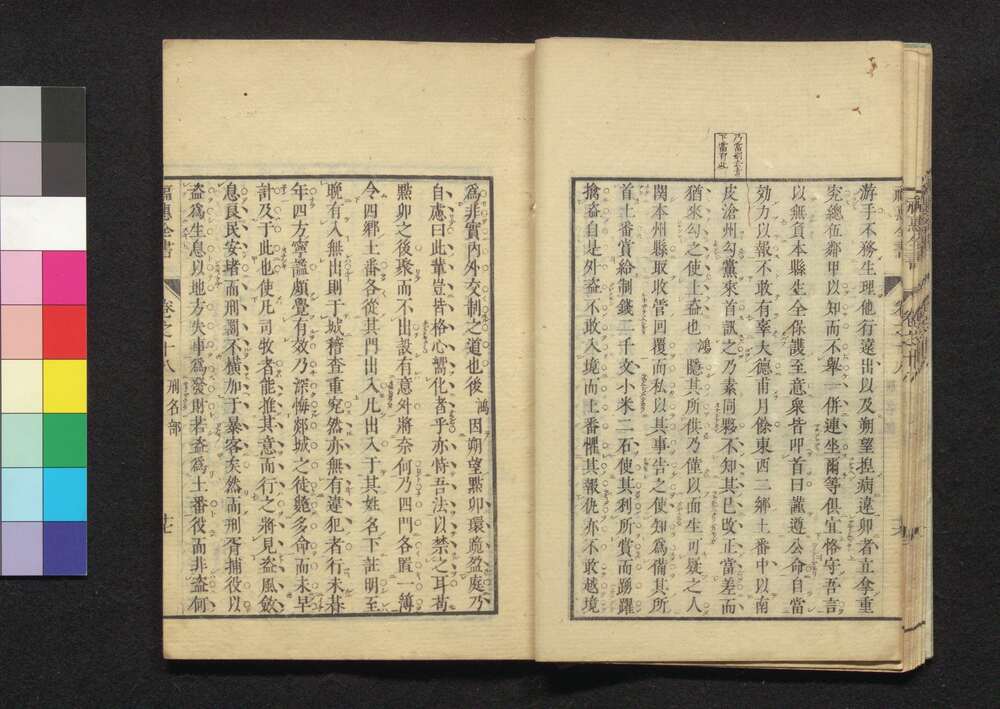 乃當別本有
下當有此
游手不務生理他行遠出以及朔望捏病違卯者立拿重
究總伍鄰甲以知而不舉一併連坐爾等俱宜恪守吾言
以無負本縣生全保護至意衆皆叩首曰謹遵公命自當
効力以報不敢有辜大德甫月餘東西二鄉土番中以南
皮滄州勾黨來首訊之乃素同夥不知其已改正當差而
猶來勾之使上盜也鴻驗其所供乃僅以面生可疑之人
関本州縣取收管回覆而私以其事告之使知爲備其所
首土番賞給制錢二千文小米二石使其利所賞而踴躍
擒盜自是外盜不敢入境而土番懼其報仇亦不敢越境
爲非實內外交制之道也後鴻因朔望點卯環跪盈庭乃
自慮曰此輩豈皆格心嚮化者乎亦恃吾法以禁之耳苟
點卯之後聚而不出設有意外將奈何乃四門各置一簿
令四鄉土番各從其門出入凡出入于其姓名下註明至
晩有入無出則于城稽查重究然亦無有違犯者行未朞
年四方寧謐頗覺有效乃深悔郯城之徒斃多命而未早
計及于此也使凡司牧者能推其意而行之將見盜風斂
息良民安堵而刑罰不橫加于暴客矣然而刑胥捕役以
盜爲生息以地方失事爲發財若盜爲土番役而非盜何
福惠全書 卷之十八 刑名部 廿